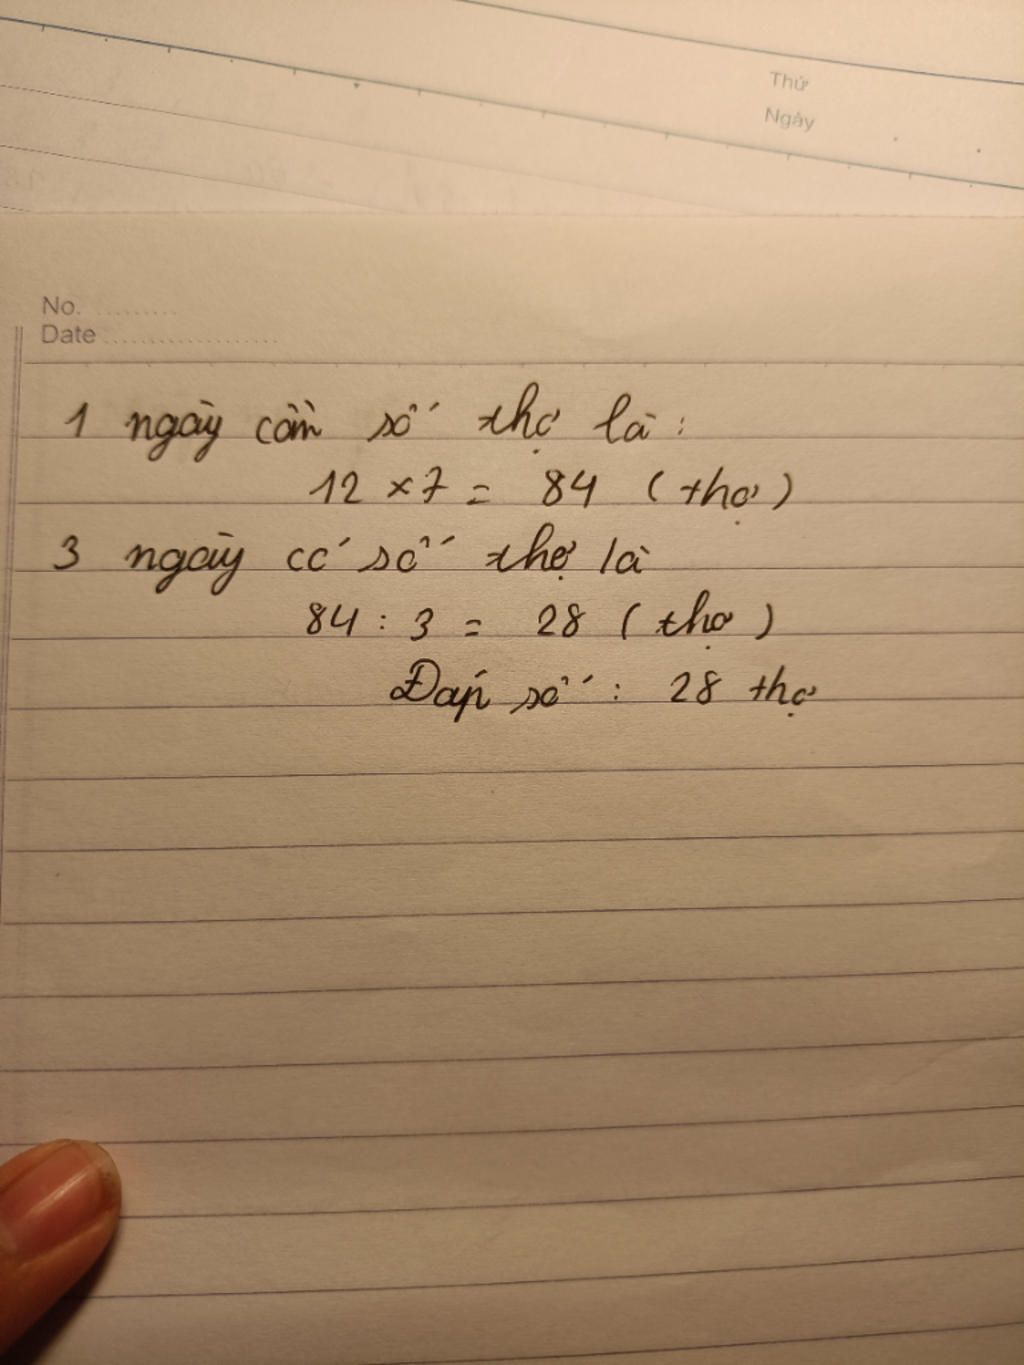 Thứ
Ngày
No. .........
Date ...................
1 ngày cần số thợ là:
12 x 7 = 84 (thợ)
3 ngày có số thợ là
84 : 3 = 28 (thợ)
Đáp số: 28 thợ